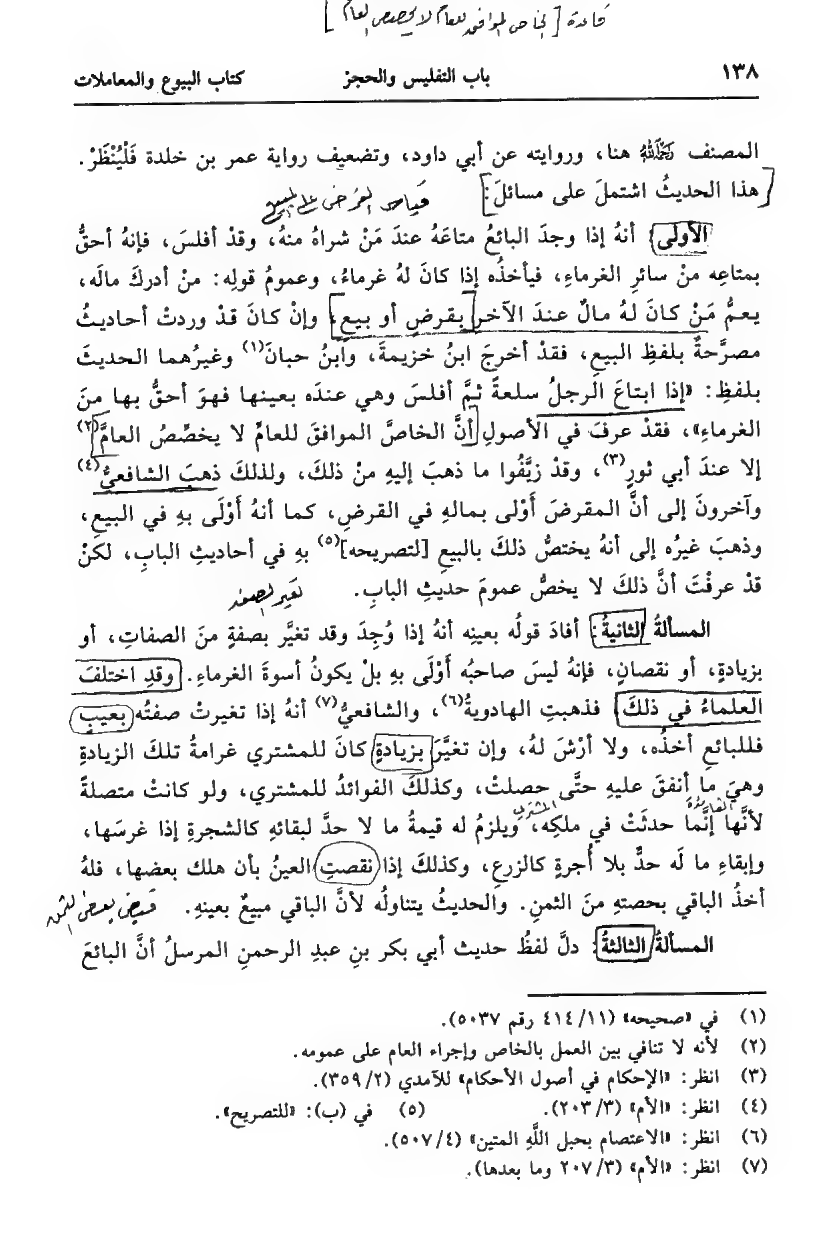 قاعدة [الخاص الموافق للعام لا يخصص العام]
١٣٨ باب التفليس والحجز كتاب البيوع والمعاملات
المصنف رَحِمَهُ اللهُ هنا، وروايته عن أبي داود، وتضعيف رواية عمر بن خلدة فَلْيُنْظَرْ.
هذا الحديثُ اشتملَ على مسائلَ:
قياس القرض على المبيع
الأولى: أنهُ إذا وجدَ البائعُ متاعَهُ عندَ مَنْ شراهُ منهُ، وقدْ أفلسَ، فإنهُ أحقُّ
بمتاعِه منْ سائرِ الغرماءِ، فيأخذُه إذا كانَ لهُ غرماءُ، وعمومُ قولِه: منْ أدركَ مالَه،
يعمُّ مَنْ كانَ لهُ مالٌ عندَ الآخرِ بقرضٍ أو بيعٍ، وإنْ كانَ قدْ وردتْ أحاديثُ
مصرَّحةٌ بلفظِ البيعِ، فقدْ أخرجَ ابنُ خزيمةَ، وابنُ حبانَ(١) وغيرُهما الحديثَ
بلفظِ: «إذا ابتاعَ الرجلُ سلعةً ثمَّ أفلسَ وهي عندَه بعينِها فهوَ أحقُّ بها منَ
الغرماءِ»، فقدْ عرفَ في الأصولِ أنَّ الخاصَّ الموافقَ للعامِّ لا يخصِّصُ العامَّ(٢)
إلا عندَ أبي ثورٍ(٣)، وقدْ زيَّفُوا ما ذهبَ إليهِ منْ ذلكَ، ولذلكَ ذهبَ الشافعيُّ(٤)
وآخرونَ إلى أنَّ المقرضَ أَوْلى بمالهِ في القرضِ، كما أنهُ أَوْلَى بهِ في البيعِ،
وذهبَ غيرُه إلى أنهُ يختصُّ ذلكَ بالبيعِ [لتصريحه](٥) بهِ في أحاديثِ البابِ، لكنْ
قدْ عرفْتَ أنَّ ذلكَ لا يخصُّ عمومَ حديثِ البابِ.
تغير الصفة
المسألةُ الثانيةُ: أفادَ قولُه بعينِه أنهُ إذا وُجِدَ وقد تغيَّر بصفةٍ منَ الصفاتِ، أو
بزيادةٍ، أو نقصانٍ، فإنهُ ليسَ صاحبُه أَوْلَى بهِ بلْ يكونُ أسوةَ الغرماءِ. وقدِ اختلفَ
العلماءُ في ذلكَ فذهبتِ الهادويةُ(٦)، والشافعيُّ(٧) أنهُ إذا تغيرتْ صفتُه بعيبٍ
فللبائعِ أخذُه، ولا أرْشَ لهُ، وإن تغيَّرَ بزيادةٍ كانَ للمشتري غرامةُ تلكَ الزيادةِ
وهيَ ما أنفقَ عليهِ حتَّى حصلتْ، وكذلكَ الفوائدُ للمشتري، ولو كانتْ متصلةً
لأنَّها إنَّما حدثَتْ في ملكِه، ويلزمُ له قيمةُ ما لا حدَّ لبقائهِ كالشجرةِ إذا غرسَها،
المشتري
وإبقاءِ ما لَه حدٌّ بلا أُجرةٍ كالزرعِ، وكذلكَ إذا نقصتِ العينُ بأن هلكَ بعضُها، فلهُ
أخذُ الباقي بحصتهِ منَ الثمنِ. والحديثُ يتناولُه لأنَّ الباقي مبيعٌ بعينهِ.
قبض بعض الثمن
المسألةُ الثالثةُ: دلَّ لفظُ حديث أبي بكر بنِ عبدِ الرحمنِ المرسلُ أنَّ البائعَ
(١) في «صحيحه» (٤١٤/١١ رقم ٥٠٣٧).
(٢) لأنه لا تنافي بين العمل بالخاص وإجراء العام على عمومه.
(٣) انظر: «الإحكام في أصول الأحكام» للآمدي (٣٥٩/٢).
(٤) انظر: «الأم» (٢٠٣/٣). (٥) في (ب): «للتصريح».
(٦) انظر: «الاعتصام بحبل اللَّهِ المتين» (٥٠٧/٤).
(٧) انظر: «الأم» (٢٠٧/٣ وما بعدها).